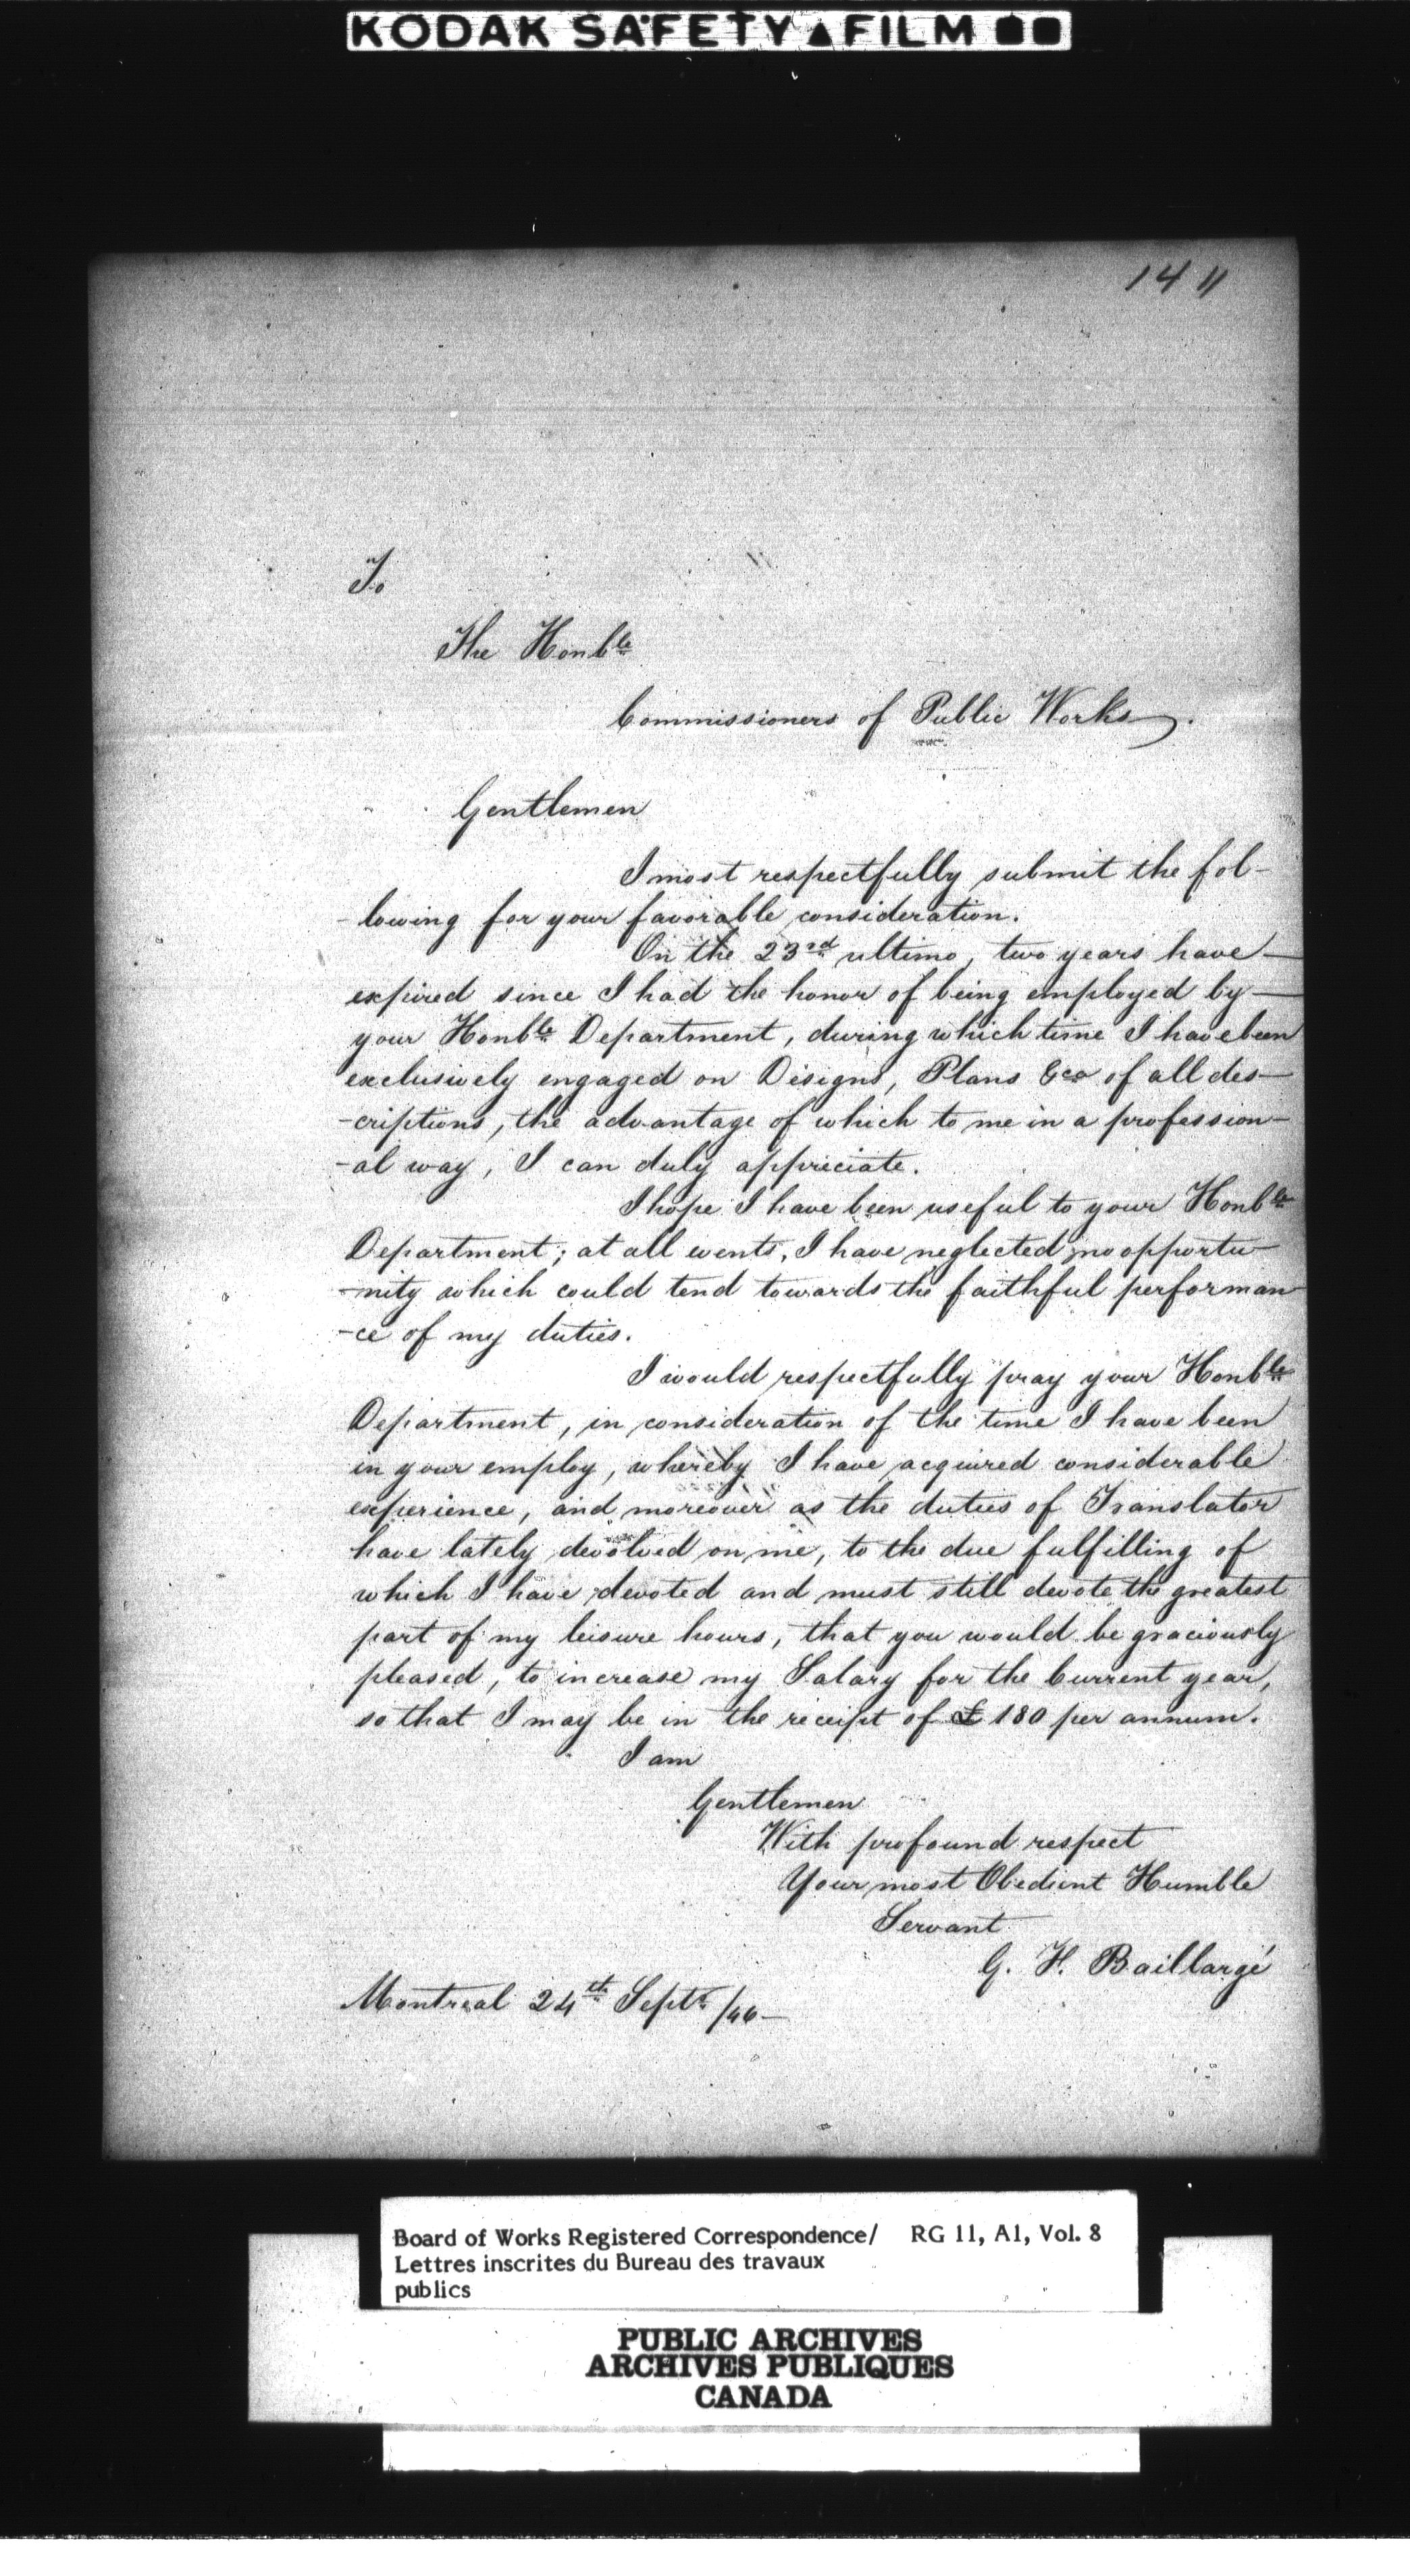 KODAK SAFETY FILM
14 11
To
The Honble
Commissioners of Public Works.
Gentlemen
I most respectfully submit the fol-
-lowing for your favorable consideration.
On the 23rd ultimo, two years have
expired since I had the honor of being employed by
your Honble Department, during which time I have been
exclusively engaged on Designs, Plans &ca of all des-
-criptions, the advantage of which to me in a profession-
-al way, I can duly appreciate.
I hope I have been useful to your Honble
Department; at all events, I have neglected no opportu-
-nity which could tend towards the faithful performan-
-ce of my duties.
I would respectfully pray your Honble
Department, in consideration of the time I have been
in your employ, whereby I have acquired considerable
experience, and moreover as the duties of Translator
have lately devolved on me, to the due fulfilling of
which I have devoted and must still devote the greatest
part of my leisure hours, that you would be graciously
pleased, to increase my Salary for the Current year,
so that I may be in the receipt of £180 per annum.
I am
Gentlemen
With profound respect
Your most Obedient Humble
Servant
G. H. Baillargé
Montreal 24th Septr /46
Board of Works Registered Correspondence/ RG 11, A1, Vol. 8
Lettres inscrites du Bureau des travaux
publics
PUBLIC ARCHIVES
ARCHIVES PUBLIQUES
CANADA